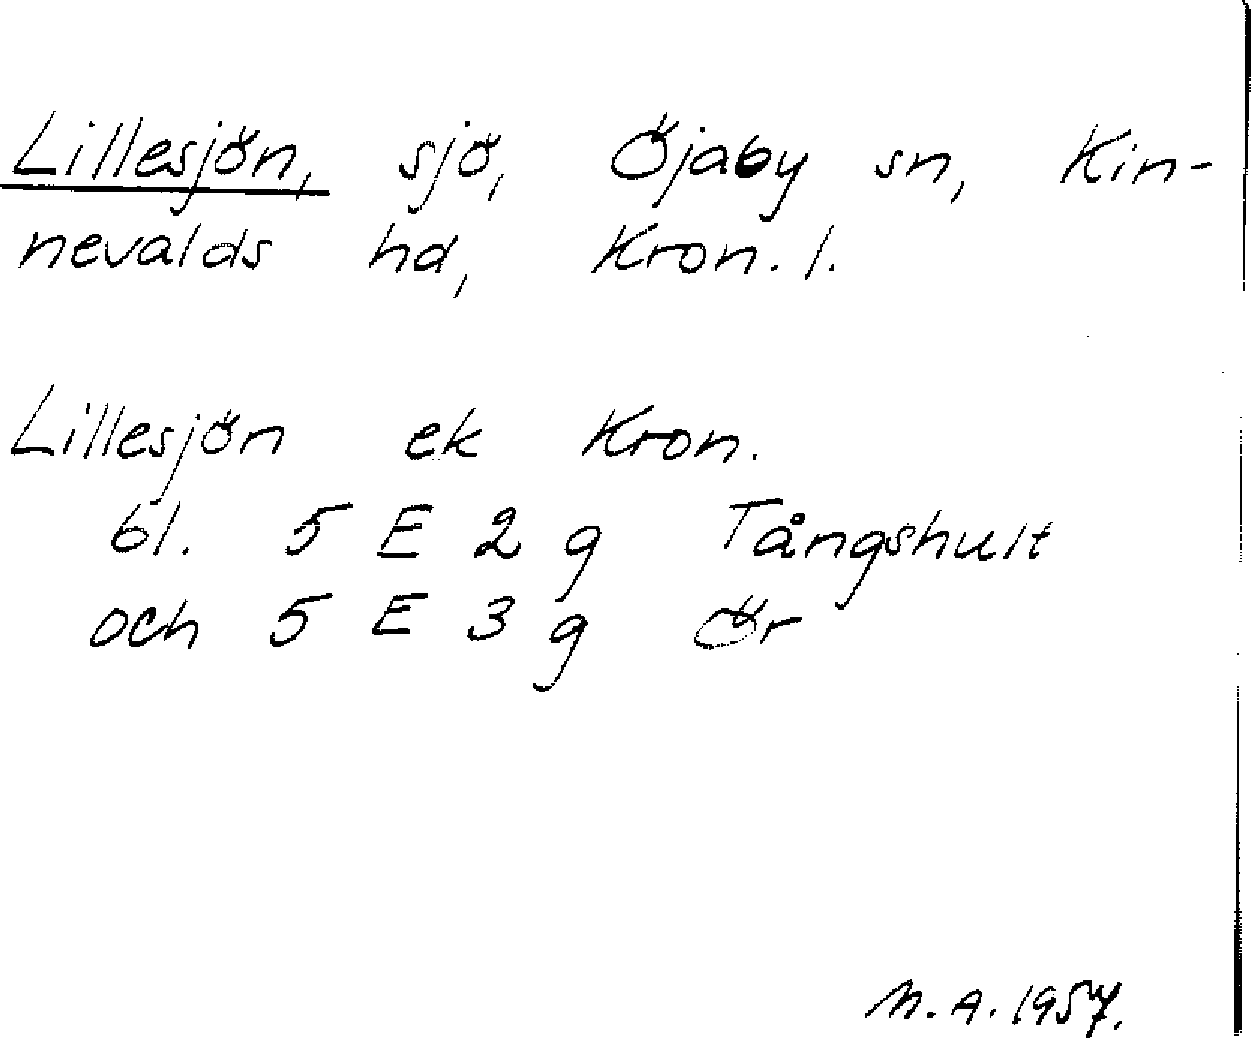 Lillesjön, sjö, Öjaby sn, Kin-
nevalds hd, Kron. l.
Lillesjön ek Kron.
bl. 5 E 2 g Tångshult
och 5 E 3 g Ör
M. A. 1957.